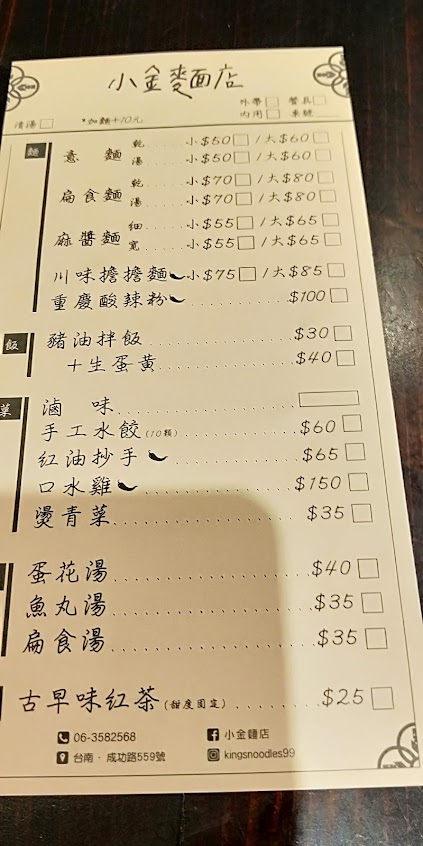 小金麵店
外帶 餐具
清湯 *加麵+10元 內用 桌號
麵
意麵 乾 小$50 /大$60
湯 小$50 /大$60
扁食麵 乾 小$70 /大$80
湯 小$70 /大$80
麻醬麵 細 小$55 /大$65
寬 小$55 /大$65
川味擔擔麵 小$75 /大$85
重慶酸辣粉 $100
飯
豬油拌飯 $30
+生蛋黃 $40
菜
滷 味
手工水餃(10顆) $60
紅油抄手 $65
口水雞 $150
燙青菜 $35
蛋花湯 $40
魚丸湯 $35
扁食湯 $35
古早味紅茶(甜度固定) $25
06-3582568 小金麵店
台南·成功路559號 kingsnoodles99